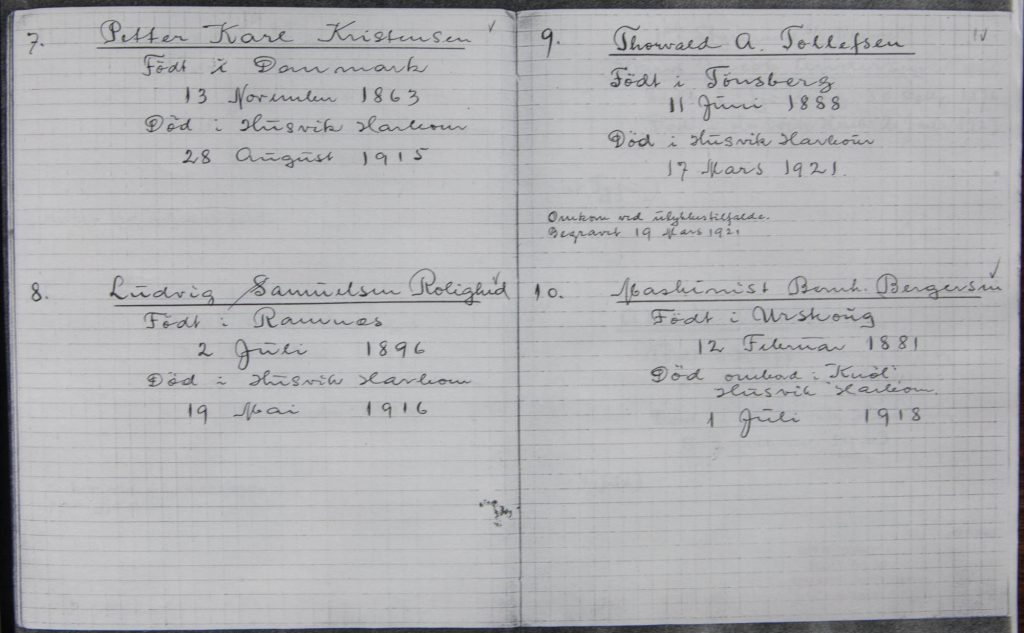 7. Petter Karl Kristensen
Födt i Danmark
13 November 1863
Död i Husvik Harbour
28 August 1915
8. Ludvig Samuelsen Rolighed
Födt i Ramnæs
2 Juli 1896
Död i Husvik Harbour
19 Mai 1916
9. Thorvald A. Tollefsen
Födt i Tönsberg
11 Juni 1888
Död i Husvik Harbour
17 Mars 1921.
Omkom ved ulykkestilfælde.
Begravet 19 Mars 1921
10. Maskinist Bernh. Bergersen
Födt i Urskoug
12 Februar 1881
Död ombord i "Knöl"
Husvik Harbour.
1 Juli 1918